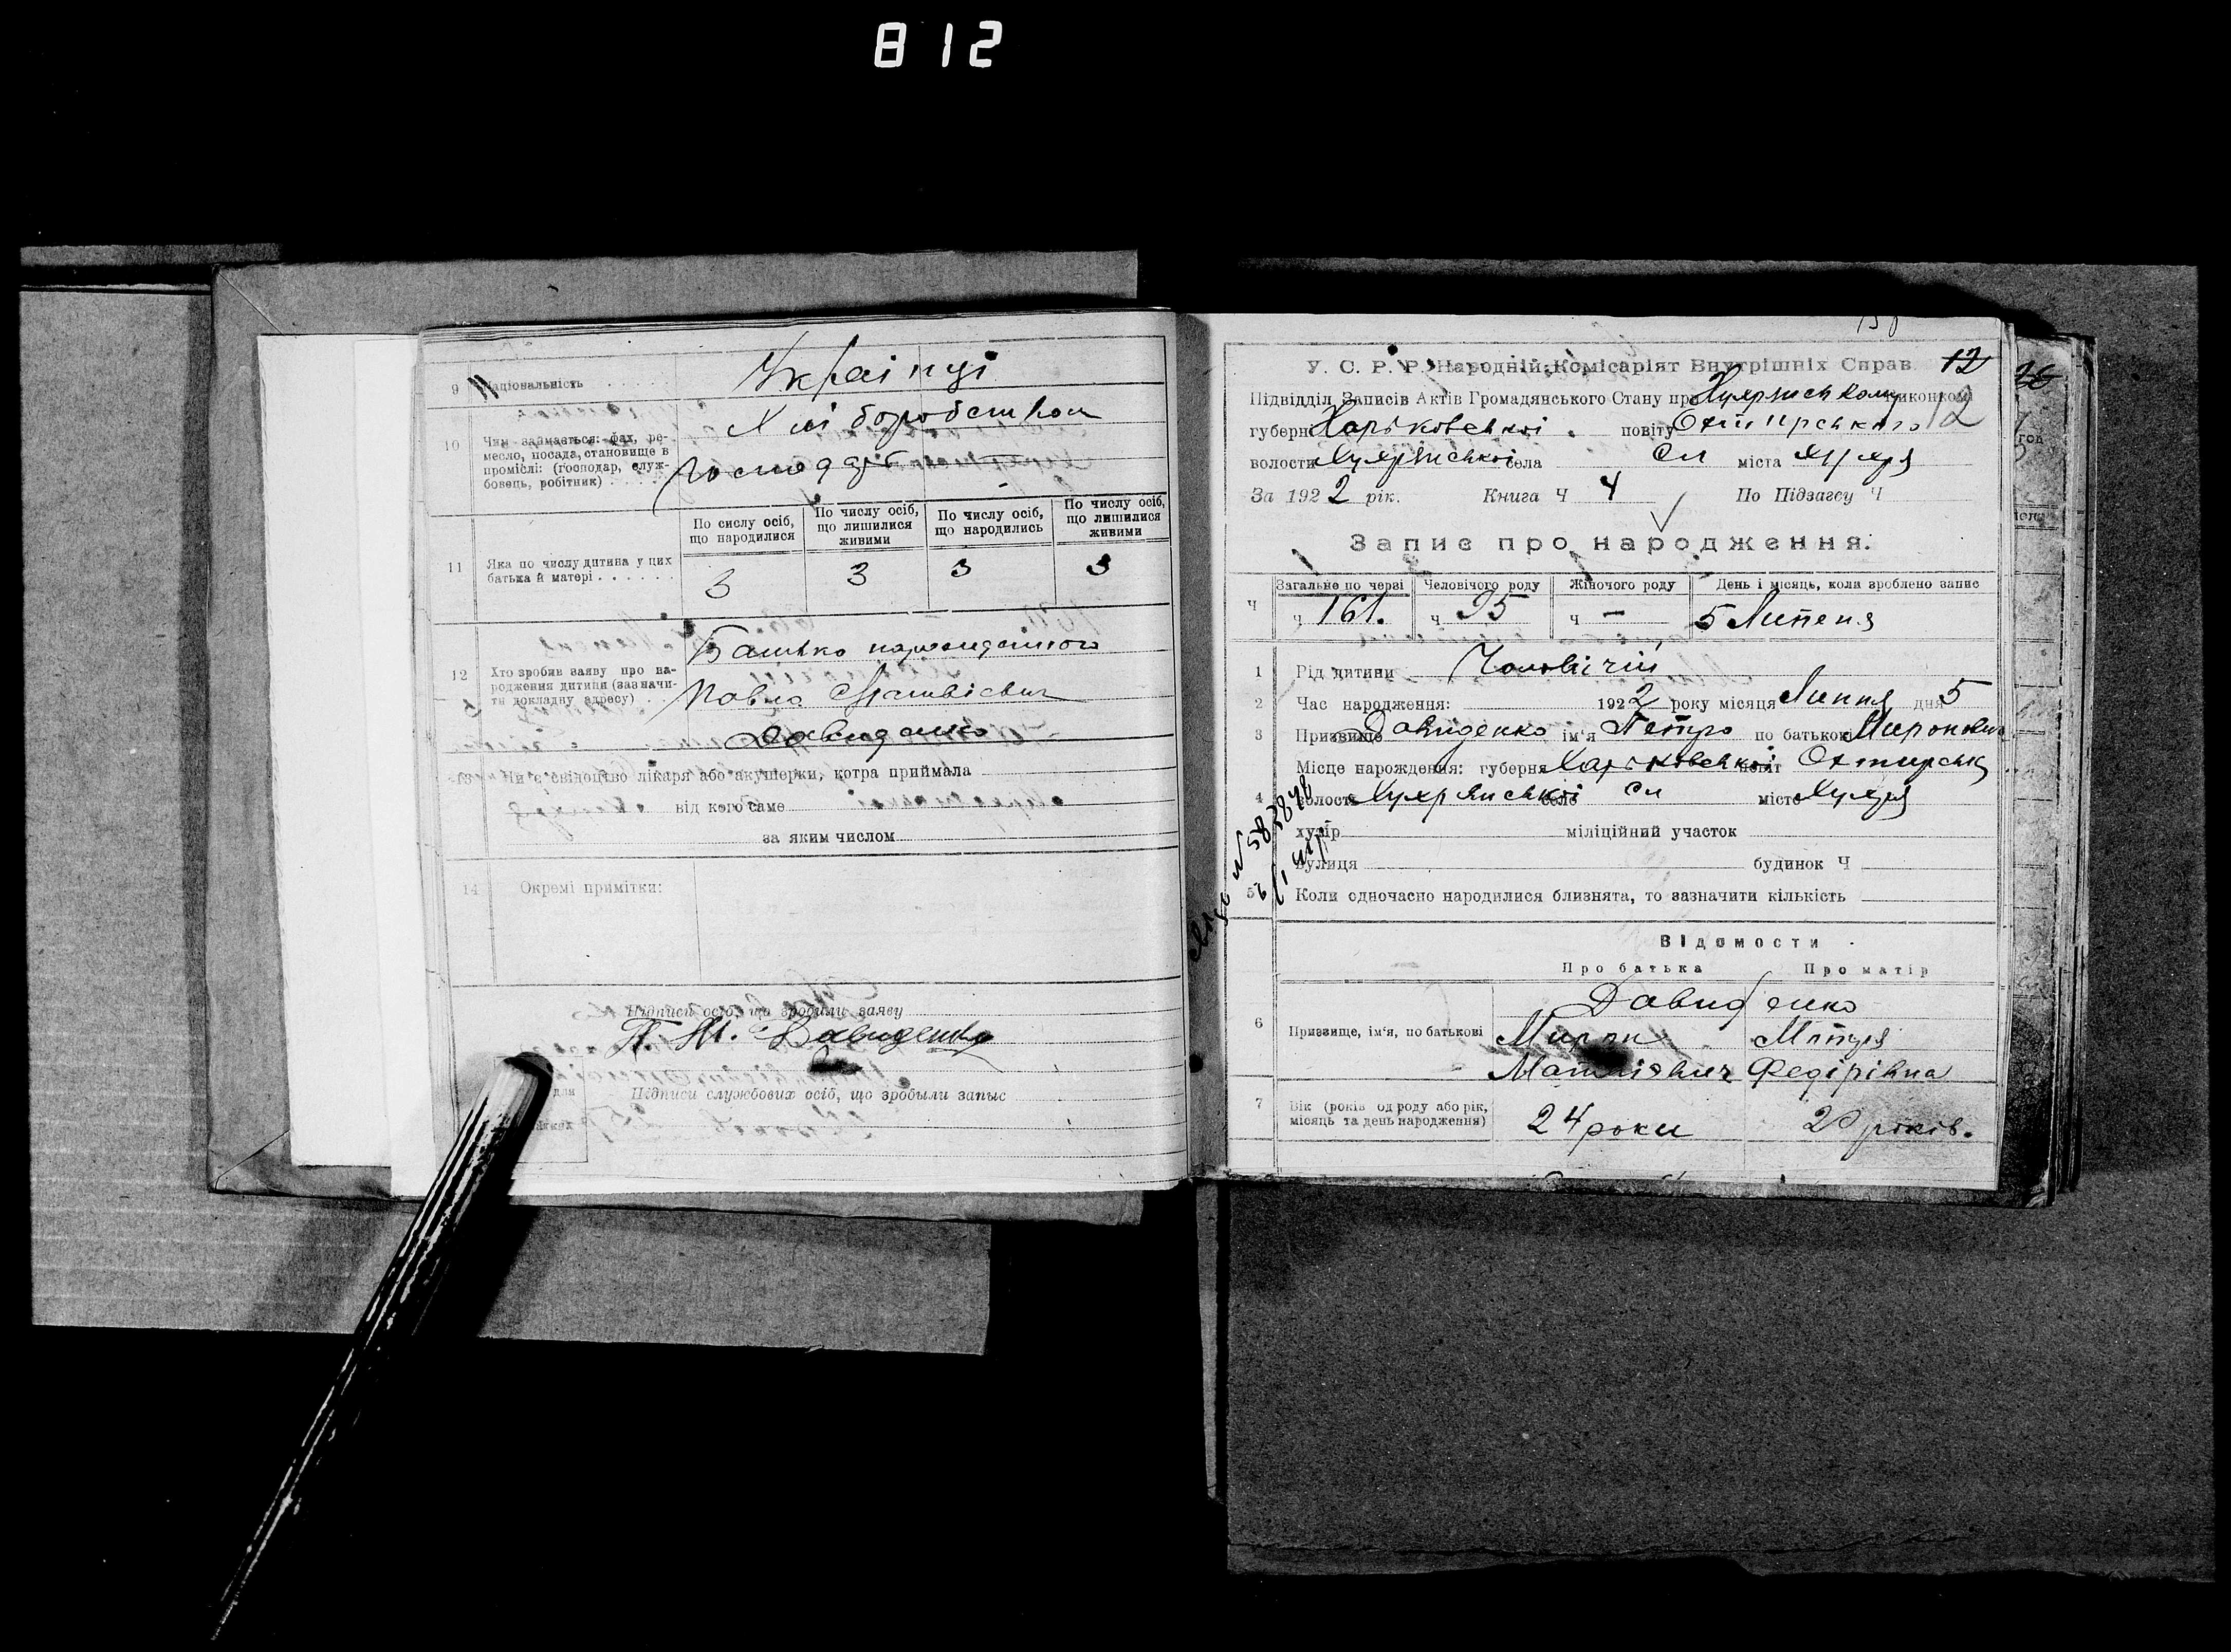 812
9 Національність Українці
10 Чим займається: фах, ре-
месло, посада, становище в
проміслі: (господар, служ-
бовець, робітник) Хліборобство
господар
11 Яка по числу дитина у цих
батька й матері
По сислу осіб,
що народилися
По числу осіб,
що лишилися
живими
По числу осіб,
що народились
По числу осіб,
що лишилися
живими
3 3 3 3
12 Хто зробив заяву про на-
родження дитини (зазначи-
ти докладну адресу) Батько
Павло
Давиденко
13 Чи є свідоцтво лікаря або акушерки, котра приймала
від кого саме
за яким числом
14 Окремі примітки:
Підписи осіб, що зробили заяву
П. М. Давиденко
Підписи службових осіб, що зробыли запыс
12
У. С. Р. Р. Народній Комісаріят Внутрішніх Справ
Підвідділ Записів Актів Громадянського Стану при
12
губерні Харьковської повіту Охтирського
волости Хухрянської села Сл міста Хухря
За 1922 рік. Книга Ч 4 По Підзагсу Ч
Запис про народження.
Ч
Загальне по черзі Человічого роду Жіночого роду День і місяць, коли зроблено запис
ч 161. ч 95 ч — 5 Липеня
1 Рід дитини Чоловічій
2 Час народження: 1922 року місяця Липня дня 5
3 Призвище Давиденко ім'я Петро по батькові Миронович
4 Місце нарождення: губерня Харьковської повіт Охтирськ
волость Хухрянської село Сл місто Хухря
хутір міліційний участок
вулиця будинок Ч
5 Коли одночасно народилися близнята, то зазначити кількість
Відомости
Про батька Про матір
6 Призвище, ім'я, по батькові
Давиденко
Мирон Мотря
Матвієвич Федірівна
7 Вік (років од роду або рік,
місяць та день народження) 24 роки 20 років.